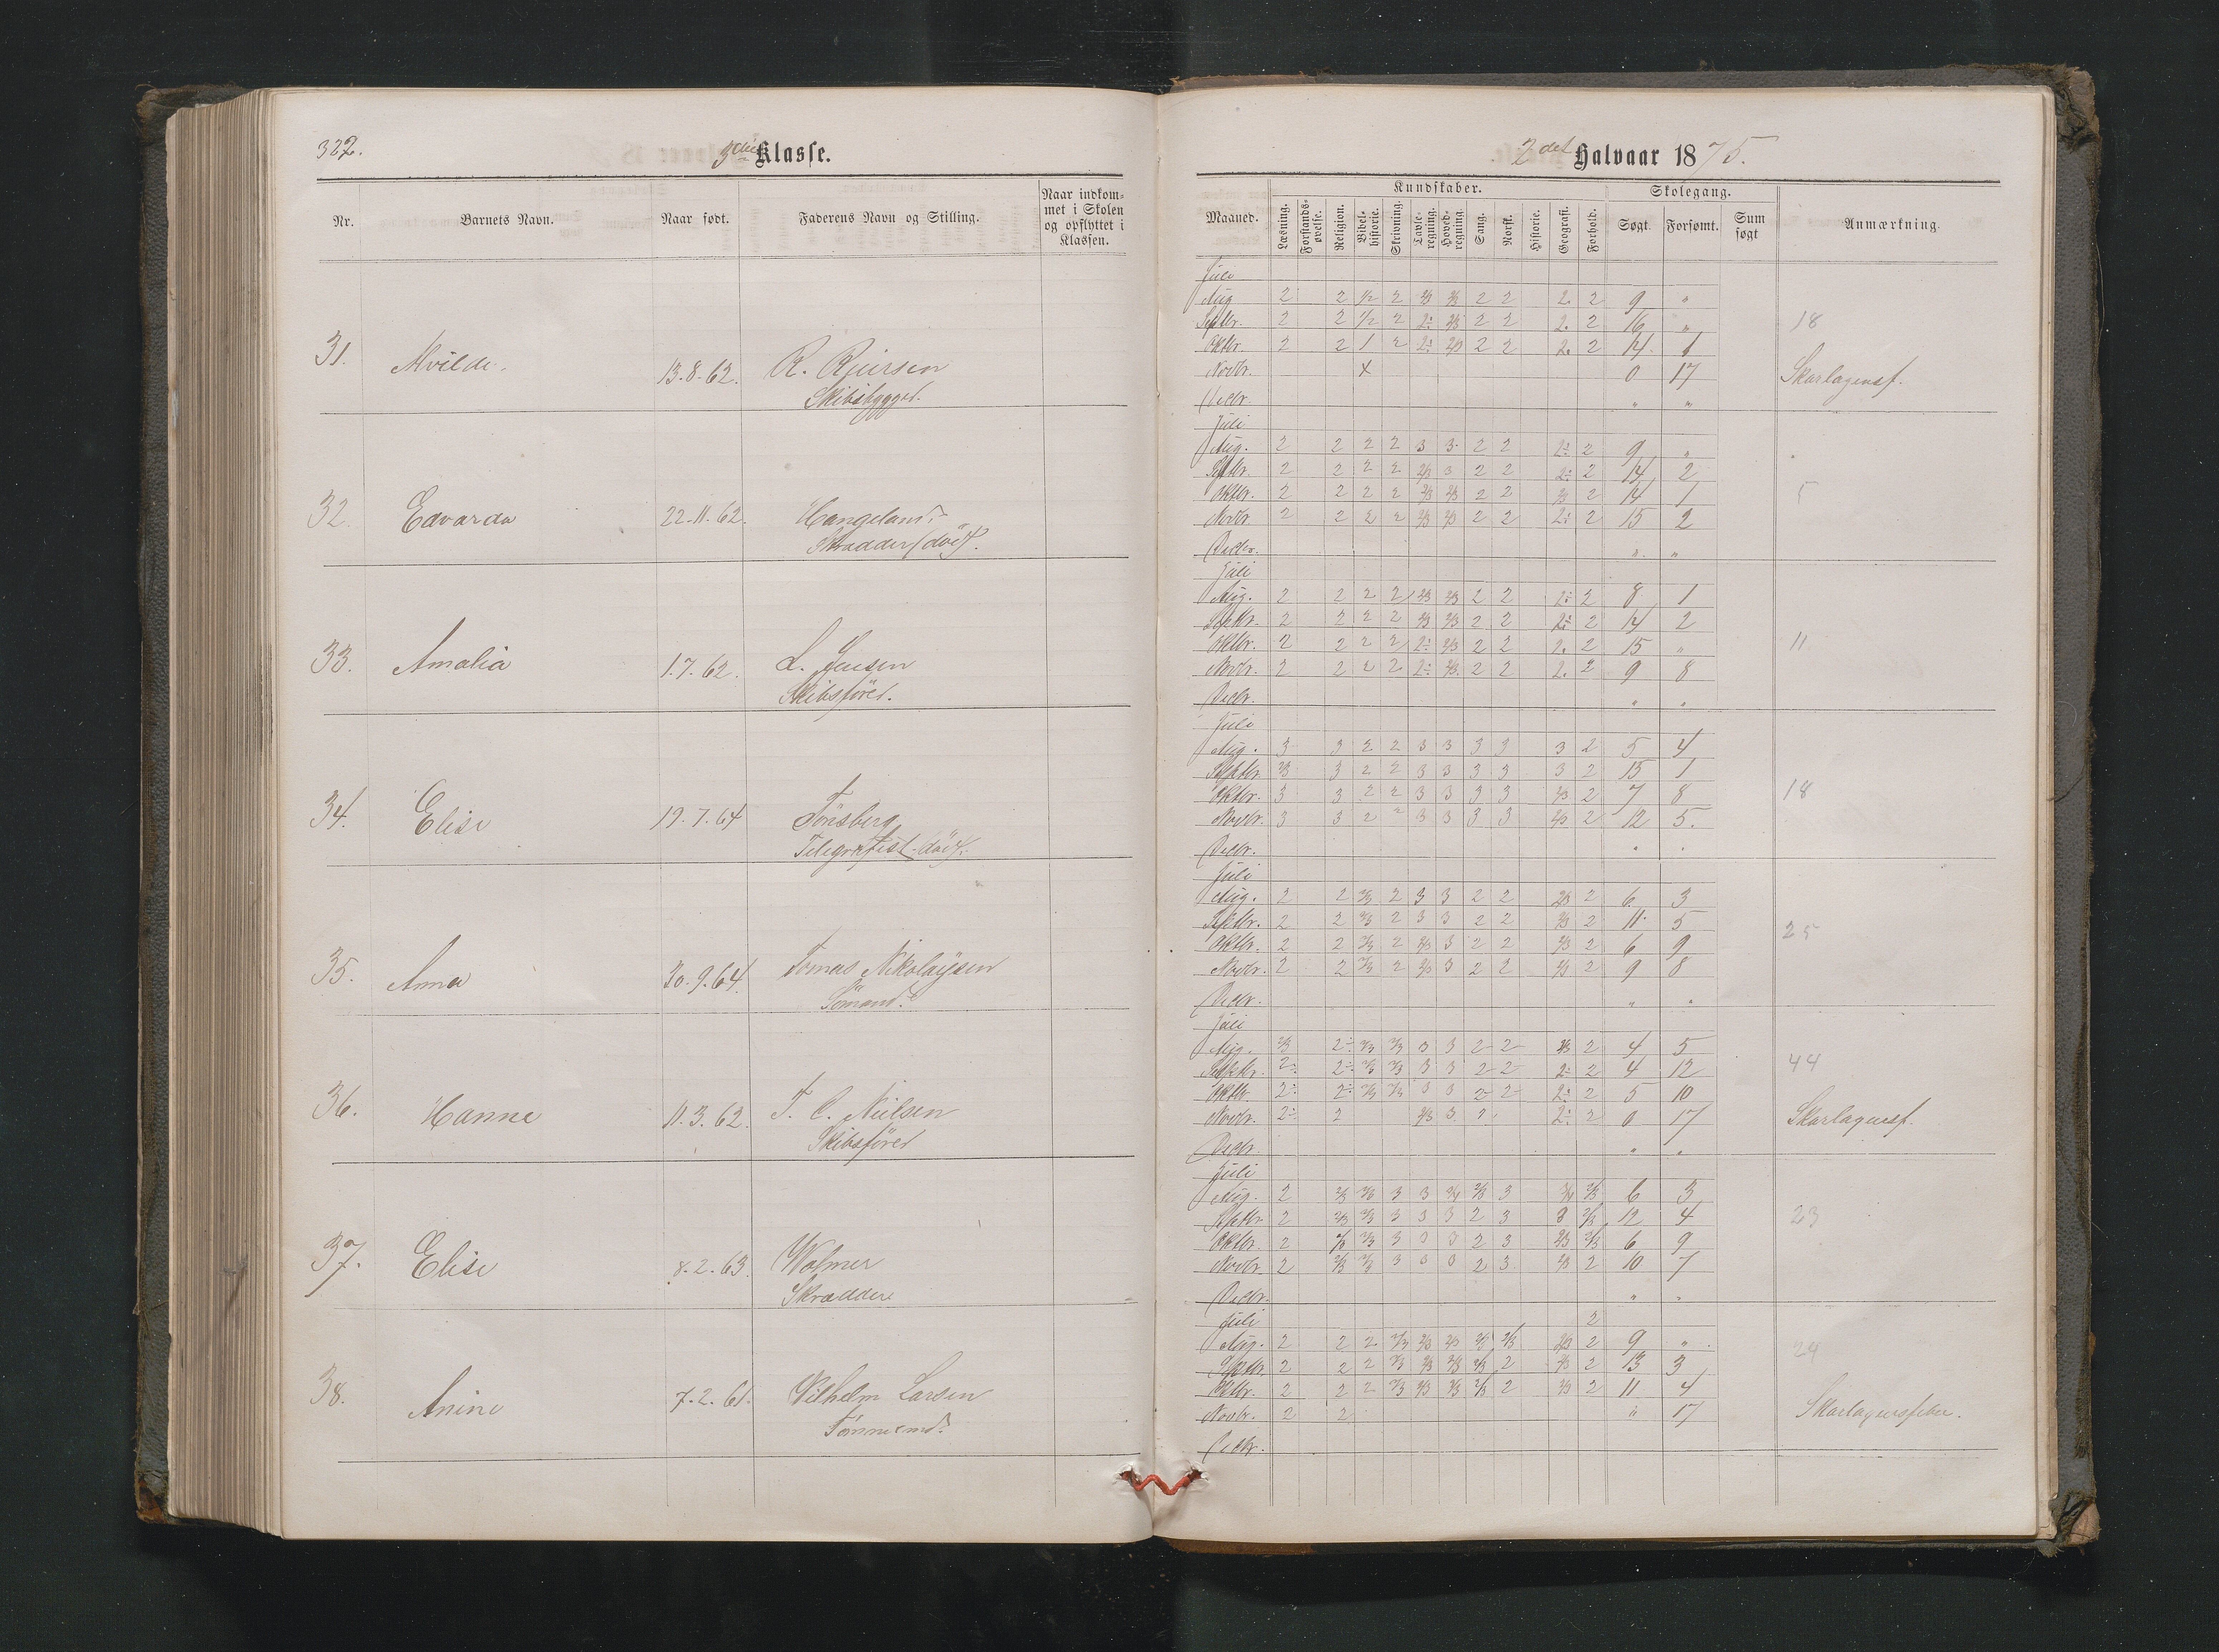 322.
3die Klasse.
Nr.
Barnets Navn.
Naar født.
Faderens Navn og Stilling.
Naar indkom-
met i Skolen
og opflyttet i
Klassen.
31. Alvilde. 13.8.62. R.
32. Edvarda 22.11.62.
33. Amalia 1.7.62. L. Jensen
Skibsfører.
34. Elise 19.7.64 Tönsberg
Telegrafist
35. Anna 30.9.64. Tomas Nikolaysen
Sömand.
36. Hanne 11.3.62. T. C. Nielsen
Skibsförer
37. Elise 8.2.63. Wolmer
Skrædder
38. Anine 7.2.61. Vilhelm Larsen
Tömmermd.
2det Halvaar 1875.
Kundskaber.
Skolegang.
Maaned.
Læsning.
Forstands-
øvelse.
Religion.
Bibel-
historie.
Skrivning.
Tavle-
regning.
Hoved-
regning.
Sang.
Norsk.
Historie.
Geografi.
Forhold.
Søgt.
Forsømt.
Sum
søgt
Anmærkning.
Juli
Aug 2 2 1/2 2 2/3 2/3 2 2 2. 2 9 "
Septbr. 2 2 1/2 2 2÷ 2/3 2 2 2. 2 16 " 18
Oktbr. 2 2 1 2 2÷ 2/3 2 2 2. 2 14. 1
Novbr. x 0 17 Skarlagensf.
Decbr. " "
Juli
Aug. 2 2 2 2 3 3 2 2 2÷ 2 9 "
Septbr. 2 2 2 2 2/3 3 2 2 2÷ 2 14 2
Oktbr. 2 2 2 2 2/3 2/3 2 2 2/3 2 14 1 5
Novbr. 2 2 2 2 2/3 2/3 2 2 2÷ 2 15 2
Decbr. " "
Juli
Aug. 2 2 2 2 2/3 2/3 2 2 2÷ 2 8 1
Septbr. 2 2 2 2 2/3 2/3 2 2 2÷ 2 14 2
Oktbr. 2 2 2 2 2÷ 2/3 2 2 2. 2 15 " 11
Novbr. 2 2 2 2 2÷ 2/3 2 2 2. 2 9 8
Decbr. " "
Juli
Aug. 3 3 2 2 3 3 3 3 3 2 5 4
Septbr. 2/3 3 2 2 3 3 3 3 3 2 15 1
Oktbr. 3 3 2 2 3 3 3 3 2/3 2 7 8 18
Novbr. 3 3 2 2 3 3 3 3 2/3 2 12 5.
Decbr. " "
Juli
Aug. 2 2 2/3 2 3 3 2 2 2/3 2 6. 3
Septbr. 2 2 2/3 2 3 3 2 2 2/3 2 11. 5 25
Oktbr. 2 2 2/3 2 2/3 3 2 2 2/3 2 6 9
Novbr. 2 2 2/3 2 2/3 3 2 2 2/3 2 9 8
Decbr. " "
Juli
Aug. 2/3 2÷ 2/3 2/3 3 3 2 2 2/3 2 4 5 44
Septbr. 2÷ 2÷ 2/3 2/3 3 3 2 2 2÷ 2 4 12
Oktbr. 2÷ 2÷ 2/3 2/3 3 3 2 2 2÷ 2 5 10
Novbr. 2÷ 2 2/3 3 2 2÷ 2 0 17 Skarlagensf.
Decbr. " "
Juli
Aug. 2 2/3 2/3 3 3 3/4 2/3 3 3/4 2/3 6 3
Septbr. 2 2/3 2/3 3 3 3 2 3 3 2/3 12 4 23
Oktbr. 2 2/3 2/3 3 3 3 2 3 2/3 2/3 6 9
Novbr. 2 2/3 2/3 3 3 3 2 3 2/3 2 10 7
Decbr. " "
Juli 2
Aug. 2 2 2 2/3 2/3 2/3 2/3 2/3 2/3 2 9 " 24
Septbr. 2 2 2 2/3 2/3 2/3 2/3 2 2/3 2 13 3
Oktbr. 2 2 2 2/3 2/3 2/3 2/3 2 2/3 2 11 4
Novbr. 2 2 " 17 Skarlagensfeber.
Decbr.